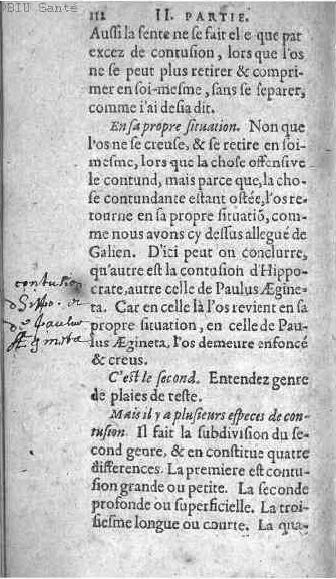 BIU Santé
112 II. PARTIE.
Aussi la fente ne se fait el e que par
excez de contusion, lors que l'os
ne se peut plus retirer & compri-
mer en soi-mesme, sans se separer,
comme i'ai desia dit.
En sa propre situation. Non que
l'os ne se creuse, & se retire en soi-
mesme, lors que la chose offensive
le contund, mais parce que, la cho-
se contundante estant ostée, l'os re-
tourne en sa propre situatiō, com-
me nous avons cy dessus allegué de
Galien. D'ici peut on conclurre,
qu'autre est la contusion d'Hippo-
crate, autre celle de Paulus Ægine-
ta. Car en celle là l'os revient en sa
propre situation, en celle de Pau-
lus Ægineta, l'os demeure enfoncé
& creus.
contusion
d'Hippo. et
de Paulus
Ægineta
C'est le second. Entendez genre
de plaies de teste.
Mais il y a plusieurs especes de con-
tusion. Il fait la subdivision du se-
cond genre, & en constitue quatre
differences. La premiere est contu-
sion grande ou petite. La seconde
profonde ou superficielle. La troi-
siesme longue ou courte. La qua-